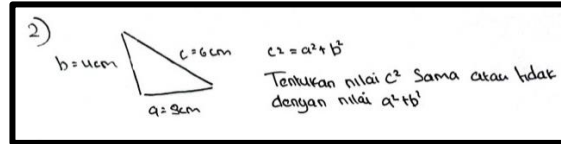 2)
b = 4cm
c = 6cm
a = 3cm
c² = a² + b²
Tentukan nilai c² Sama atau tidak
dengan nilai a² + b²